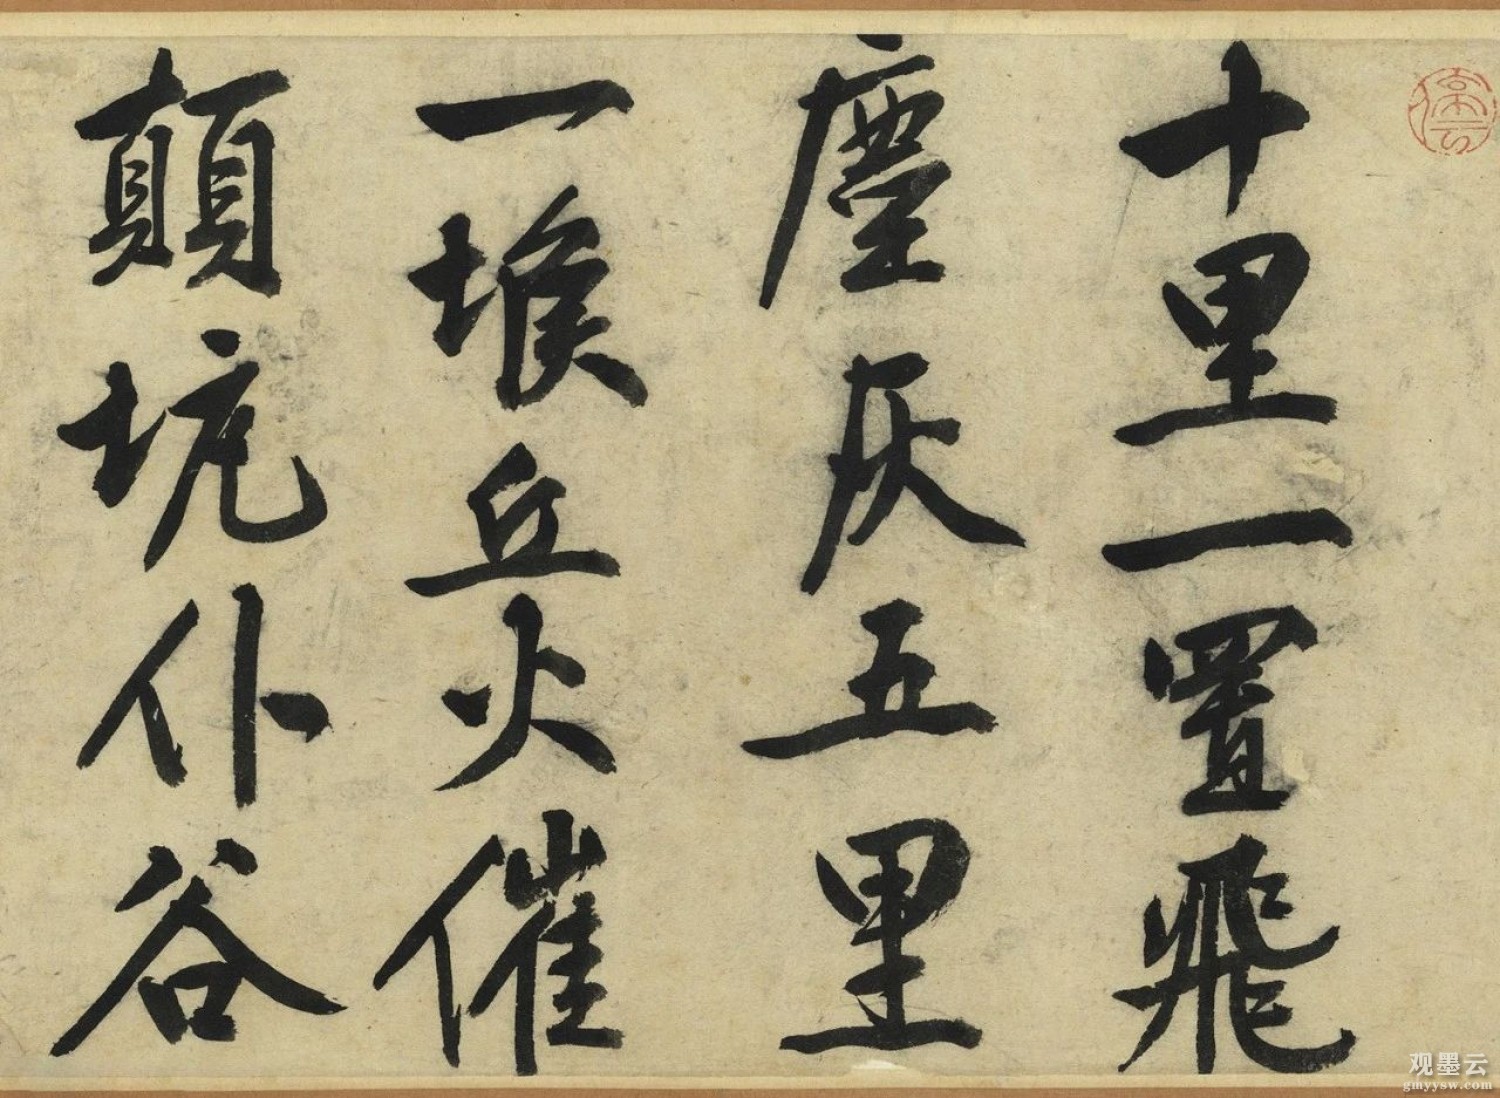 十里一置飛
塵灰五里
一堠丘火催
顛坑仆谷
观墨云
gmyysw.com